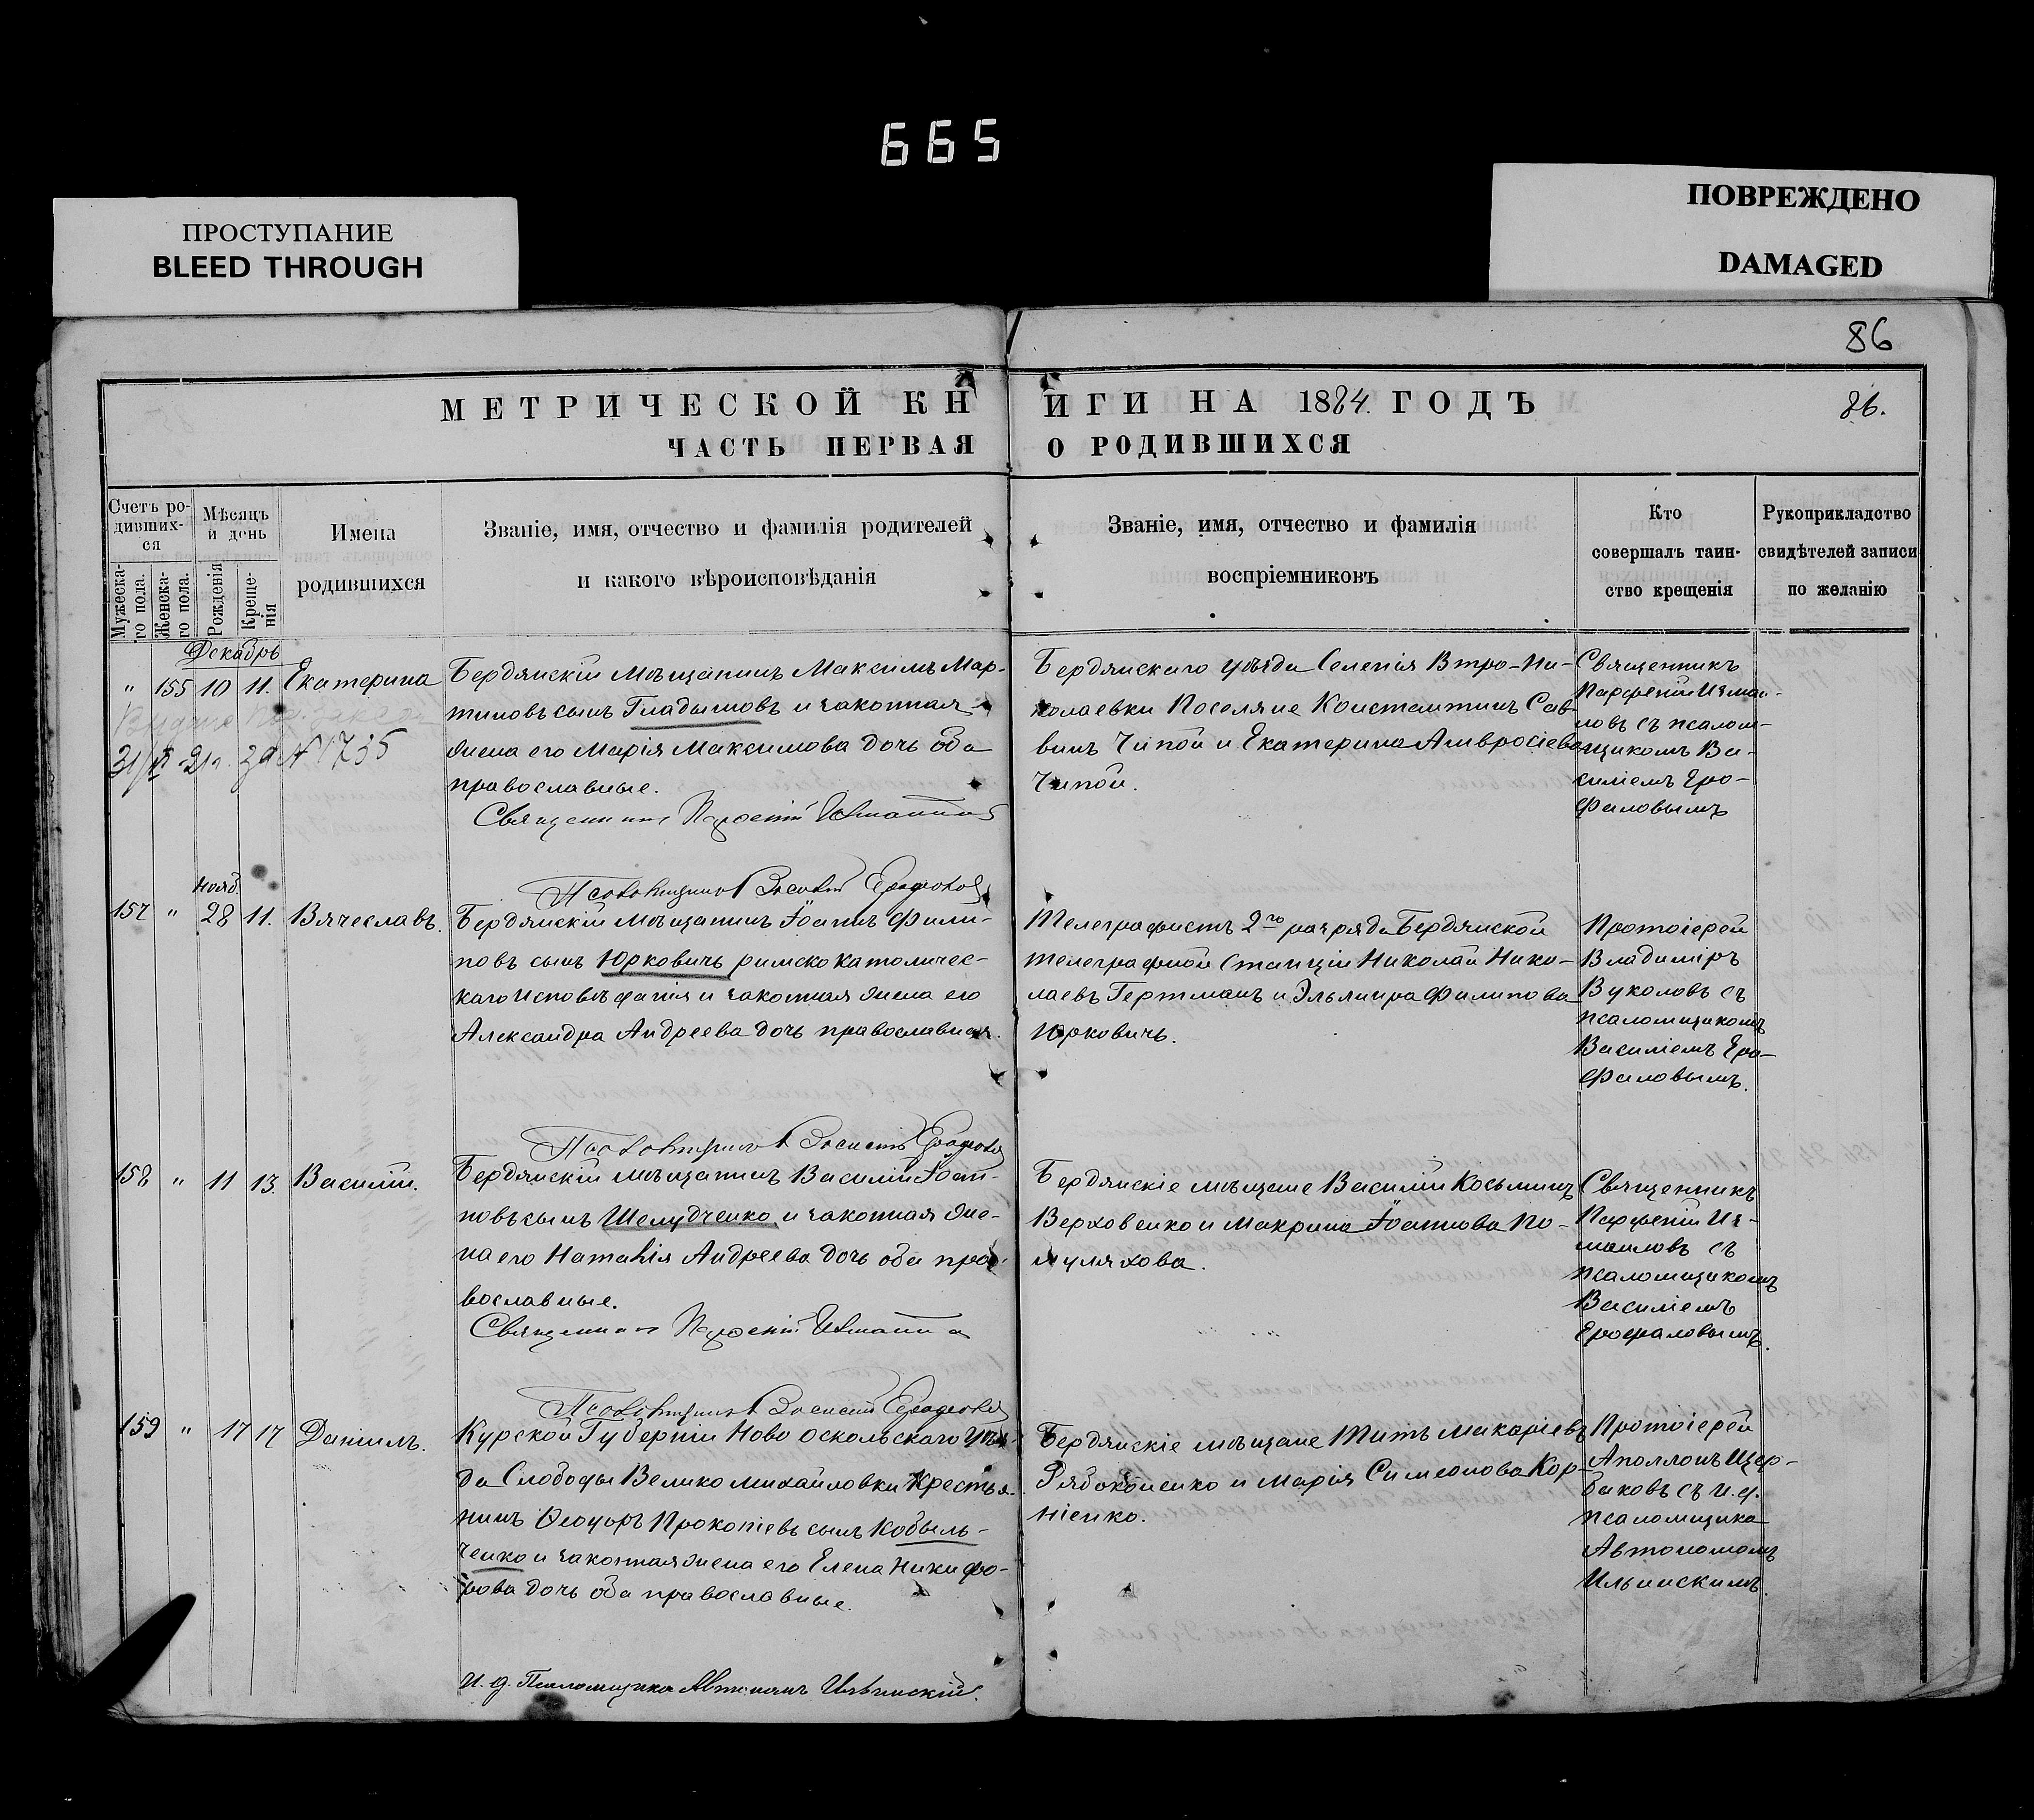 665
ПРОСТУПАНИЕ
BLEED THROUGH
ПОВРЕЖДЕНО
DAMAGED
86
МЕТРИЧЕСКОЙ КНИГИ НА 1884. ГОДЪ
86.
ЧАСТЬ ПЕРВАЯ О РОДИВШИХСЯ
Счетъ ро-
дивших-
ся
Мужеска-
го пола.
Женска-
го пола.
Мѣсяцъ
и день
Рожденія
Креще-
нія
Имена
родившихся
Званіе, имя, отчество и фамилія родителей
и какого вѣроисповѣданія
Званіе, имя, отчество и фамилія
воспріемниковъ
Кто
совершалъ таин-
ство крещенія
Рукоприкладство
свидѣтелей записи
по желанію
Декабрь
" 155 10 11. Екатерина
№ 1735
Бердянскій мѣщанинъ Максимъ Мар-
тиновъ сынъ Гладышовъ и законная
жена его Марія Максимова дочь оба
православные.
Священникъ Парфеній
Бердянскаго уѣзда Селенія Втро-Ни-
колаевки Поселяне Константинъ Сав-
винъ Чипой и Екатерина Амвросіева
Чипой.
Священникъ
Парфеній Измаи-
ловъ съ псалом-
щикомъ Ва-
силіемъ Еро-
фаловымъ
Псаломщикъ Василій
Нояб.
157 " 28 11. Вячеславъ.
Бердянскій мѣщанинъ Іоаннъ Фили-
повъ сынъ Юрковичь римско католичес-
каго исповѣданія и законная жена его
Александра Андреева дочь православная.
Телеграфистъ 2го разряда Бердянской
телеграфной Станціи Николай Нико-
лаевъ Гертманъ и Эльмира Филипова
Юрковичь.
Протоіерей
Владиміръ
Вуколовъ съ
псаломщикомъ
Василіемъ Еро-
фаловымъ.
Псаломщикъ Василій
158 " 11 13. Василій.
Бердянскій мѣщанинъ Василій Іоан-
новъ сынъ Шелудченко и законная же-
на его Наталія Андреева дочь оба пра-
вославные.
Священникъ Парфеній
Бердянскіе мѣщане Василій Косьминъ
Верховенко и Макрина Іоаннова По-
муляхова.
Священникъ
Парфеній Из-
маиловъ съ
псаломщикомъ
Василіемъ
Ерофаловымъ.
Псаломщикъ Василій
159 " 17 17 Даніилъ.
Курской Губерніи Ново Оскольскаго уѣз-
да Слободы Велико михайловки Крестья-
нинъ Ѳеодоръ Прокопіевъ сынъ Кобыль-
ченко и законная жена его Елена Никифо-
рова дочь оба православные.
Бердянскіе мѣщане Титъ Макаріевъ
Рябоконенко и Марія Симеонова Кор-
ніенко.
Протоіерей
Аполлонъ Щер-
баковъ съ и. д.
псаломщика
Автономомъ
Ильинскимъ.
И. д. Псаломщика Автономъ Ильинскій.